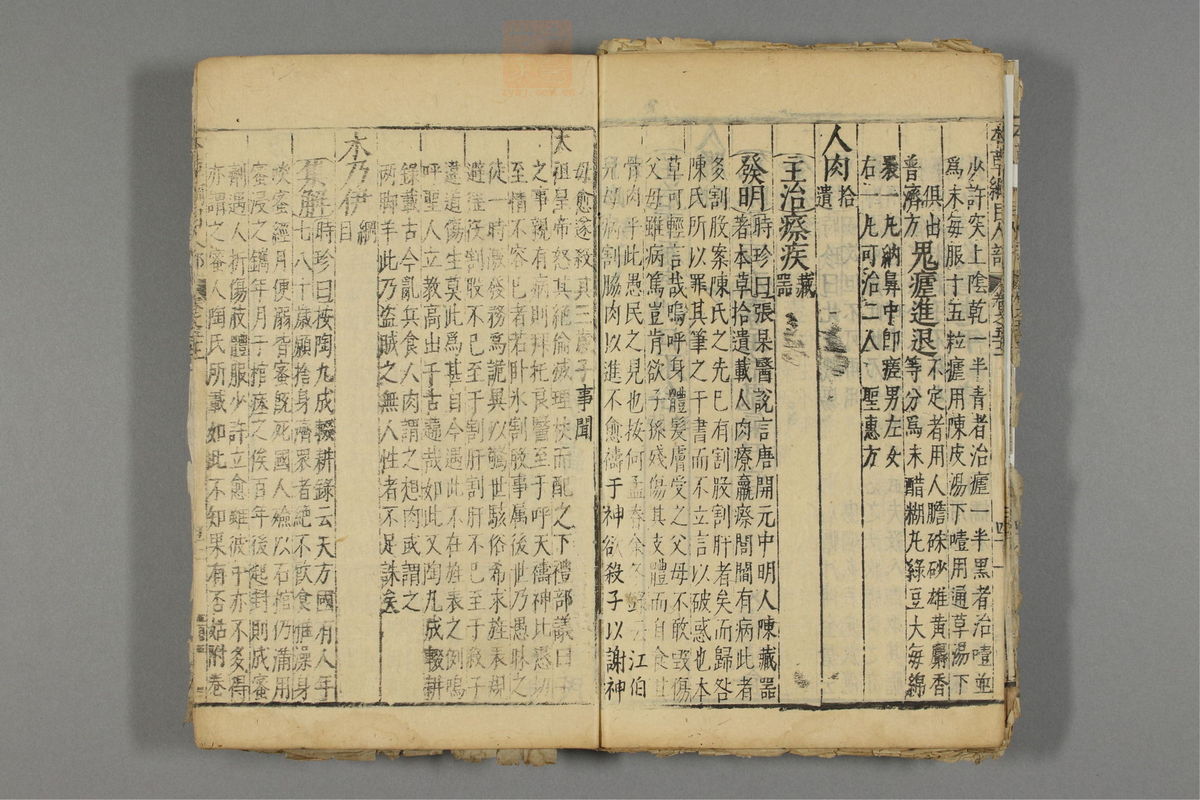 本草綱目人部
少許突上陰乾一半青者治瘧一半黑者治噎並
爲末每服十五粒瘧用陳皮湯下噎用通草湯下
俱出普濟方 鬼瘧進退不定者用人膽硃砂雄黃麝香等分爲末醋糊丸綠豆大每綿
裹一丸納鼻中即瘥男左女
右一丸可治二人 聖惠方
人肉拾遺
主治瘵疾藏器
發明時珍曰張杲醫說言唐開元中明人陳藏器
著本草拾遺載人肉療羸瘵閭閻有病此者
多割股案陳氏之先已有割股割肝者矣而歸咎
陳氏所以罪其筆之于書而不立言以破惑也本
草可輕言哉嗚呼身體髮膚受之父母不敢毀傷
父母雖病篤豈肯欲子孫殘傷其支體而自食
骨肉乎此愚民之見也按何孟春餘冬錄云江伯
兒母病割脇肉以進不愈禱于神欲殺子以謝神
母愈遂殺其三歲子事聞
太祖皇帝怒其絕倫滅理杖而配之下禮部議曰子
之事親有病則拜托良醫至于呼天禱神此懇切
至情不容已者若臥冰割股事属後世乃愚昧之
徒一時激發務爲詭異以驚世駭俗希求旌表規
避徭役割股不已至于割肝割肝不已至于殺子
違道傷生莫此爲甚自今遇此不在旌表之例嗚
呼聖人立教高出千古韙哉如此又陶九成輟耕
錄載古今亂兵食人肉謂之想肉或謂之
兩脚羊此乃盜賊之無人性者不足誅矣
木乃伊綱目
集解時珍曰按陶九成輟耕錄云天方國有人年
七八十歲願捨身濟眾者絕不飲食惟澡身
啖蜜經月便溺皆蜜既死國人殮以石棺仍滿用
蜜浸之鐫年月于棺瘞之俟百年後起封則成蜜
劑遇人折傷肢體服少許立愈雖彼中亦不多得
亦謂之蜜人陶氏所載如此不知果有否姑附卷